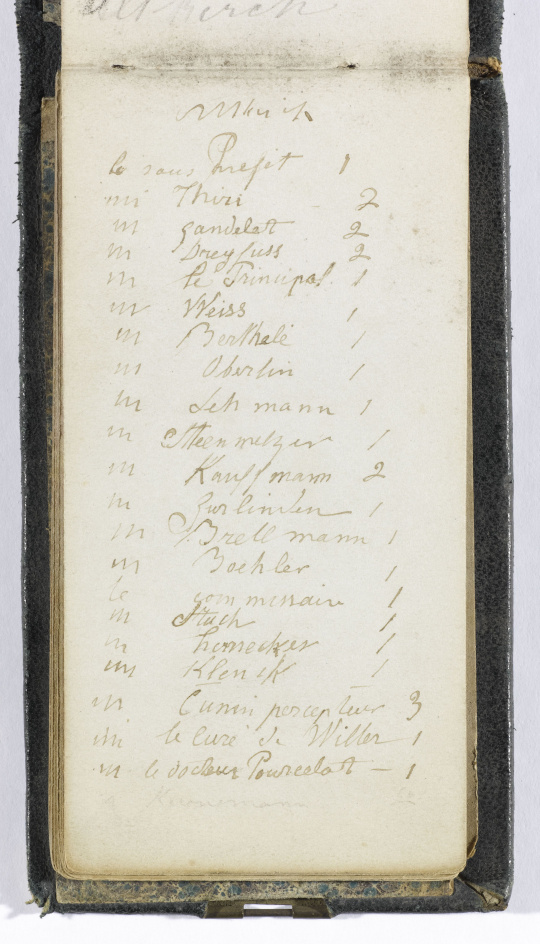 Altkirch
Altkirch
le sous Prefet 1
m Thiri 2
m gandelat 2
m Dreyfuss 2
m le Principal 1
m Weiss 1
m Berthalé 1
m Oberlin 1
m Leh mann 1
m Steenmetzer 1
m Kauffmann 2
m Zurlinden 1
m Brell mann 1
m Boehler 1
le commissaire 1
m Stuch 1
m hornecker 1
m Klenck 1
m Cunin percepteur 3
m le Curé de Willer 1
m le docteur Pourcelot — 1